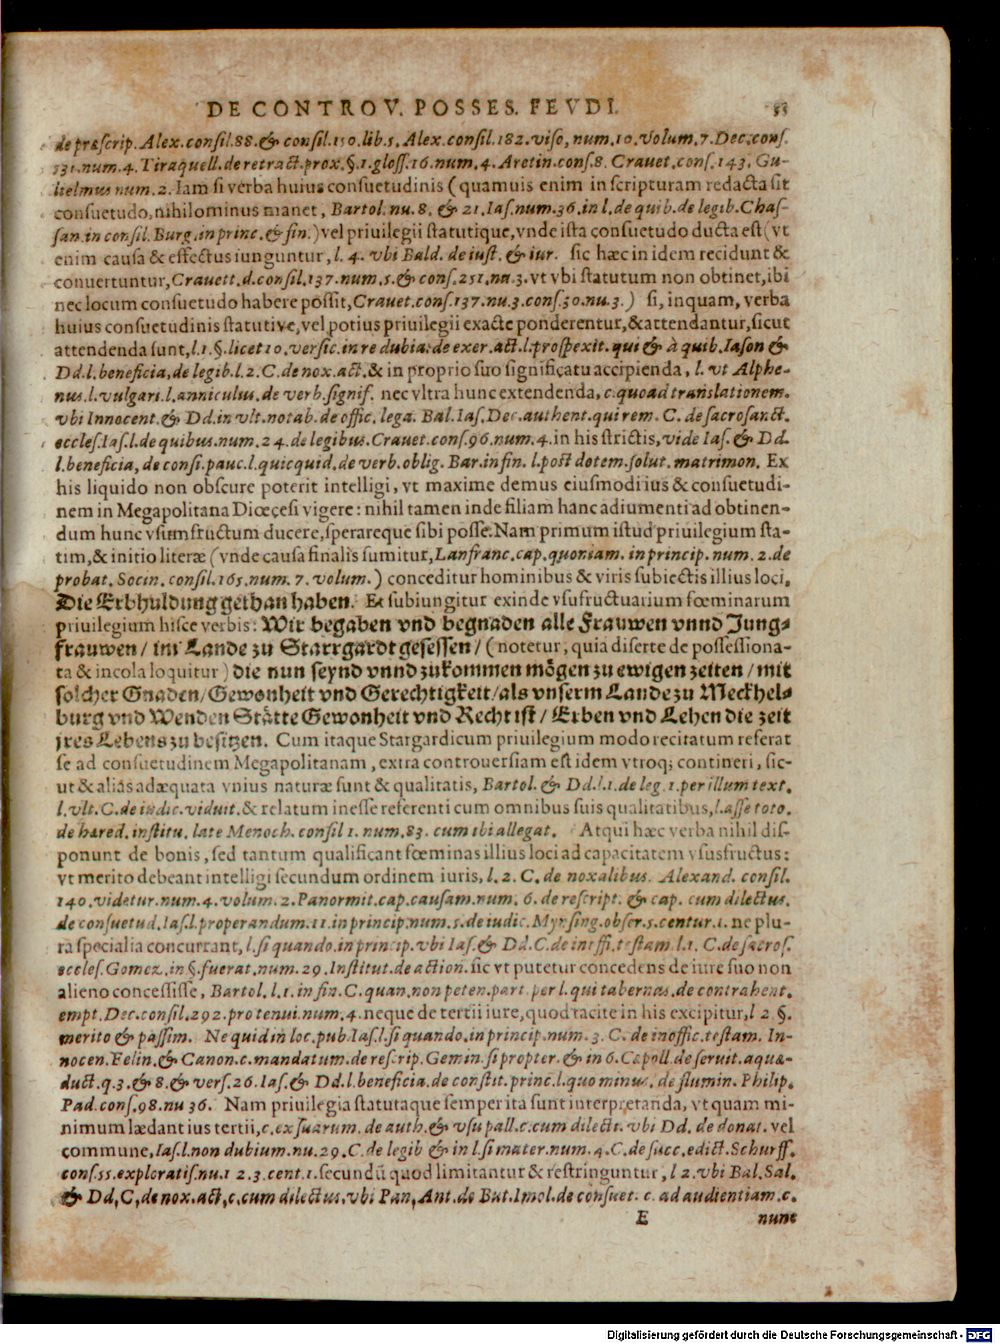 DE CONTROV. POSSES. FEVDI. 33
de præscrip. Alex. consil. 88. & consil. 150. lib. 5. Alex. consil. 182. viso, num. 10. Volum. 7. Dec. cons.
531. num. 4. Tiraquell. de retract. prox. §. 1. gloss. 16. num. 4. Aretin. cons. 8. Crauet. cons. 143. Gu-
lielmus num. 2. Iam si verba huius consuetudinis (quamuis enim in scripturam redacta sit
consuetudo, nihilominus manet, Bartol. nu. 8. & 21. Ias. num. 36. in l. de quib. de legib. Chas-
san. in consil. Burg. in princ. & fin.) vel priuilegii statutique, vnde ista consuetudo ducta est (vt
enim causa & effectus iunguntur, l. 4. vbi Bald. de iust. & iur. sic hæc in idem recidunt &
conuertuntur, Crauett. d. consil. 137. num. 5. & cons. 251. nu. 3. vt vbi statutum non obtinet, ibi
nec locum consuetudo habere possit, Crauet. cons. 137. nu. 3. cons. 30. nu. 3.) si, inquam, verba
huius consuetudinis statutive, vel potius priuilegii exacte ponderentur, & attendantur, sicut
attendenda sunt, l. 1. §. licet 10. versic. in re dubia: de exer. act. l. prospexit. qui & à quib. Iason &
Dd. l. beneficia, de legib. l. 2. C. de nox. act. & in proprio suo significatu accipienda, l. vt Alphe-
nus. l. vulgari. l. anniculus. de verb. signif. nec vltra hunc extendenda, c. quo ad translationem.
vbi Innocent. & Dd. in vlt. notab. de offic. lega. Bal. Ias. Dec. authent. qui rem. C. de sacrosanct.
eccles. Ias. l. de quibus. num. 24. de legibus. Crauet. cons. 96. num. 4. in his strictis, vide Ias. & Dd.
l. beneficia, de consi. pauc. l. quicquid. de verb. oblig. Bar. in fin. l. post dotem. solut. matrimon. Ex
his liquido non obscure poterit intelligi, vt maxime demus eiusmodi ius & consuetudi-
nem in Megapolitana Diœcesi vigere: nihil tamen inde filiam hanc adiumenti ad obtinen-
dum hunc vsumfructum ducere, sperareque sibi posse. Nam primum istud priuilegium sta-
tim, & initio literæ (vnde causa finalis sumitur, Lanfranc. cap. quoniam. in princip. num. 2. de
probat. Socin. consil. 165. num. 7. volum.) conceditur hominibus & viris subiectis illius loci.
Die Erbhuldung gethan haben. Et subiungitur exinde vsufructuarium fœminarum
priuilegium hisce verbis: Wir begaben vnd begnaden alle Frauwen vnnd Jung-
frauwen / im Lande zu Starrgardt gesessen / (notetur, quia diserte de possessiona-
ta & incola loquitur) die nun seynd vnnd zukommen mögen zu ewigen zeiten / mit
solcher Gnaden / Gewonheit vnd Gerechtigkeit / als vnserm Lande zu Meckhel-
burg vnd Wenden Stätte Gewonheit vnd Recht ist / Erben vnd Lehen die zeit
jres Lebens zu besitzen. Cum itaque Stargardicum priuilegium modo recitatum referat
se ad consuetudinem Megapolitanam, extra controuersiam est idem vtroq; contineri, sic-
ut & alias adæquata vnius naturæ sunt & qualitatis, Bartol. & Dd. l. 1. de leg. 1. per illum text.
l. vlt. C. de indic. viduit. & relatum inesse referenti cum omnibus suis qualitatibus, l. asse toto.
de hared. institu. late Menoch. consil 1. num. 83. cum ibi allegat. Atqui hæc verba nihil dis-
ponunt de bonis, sed tantum qualificant fœminas illius loci ad capacitatem vsusfructus:
vt merito debeant intelligi secundum ordinem iuris, l. 2. C. de noxalibus. Alexand. consil.
140. videtur. num. 4. volum. 2. Panormit. cap. causam. num. 6. de rescript. & cap. cum dilectus.
de consuetud. Ias. l. properandum. 11. in princip. num. 5. de iudic. Mynsing. obser. 5. centur. 1. ne plu-
ra specialia concurrant, l. si quando. in princip. vbi Ias. & Dd. C. de inoffi. testam. l. 1. C. de sacros.
eccles. Gomez. in §. fuerat. num. 29. Institut. de action. sic vt putetur concedens de iure suo non
alieno concessisse, Bartol. l. 1. in fin. C. quan. non peten. part. per l. qui tabernas. de contrahent.
empt. Dec. consil. 292. pro tenui. num. 4. neque de tertii iure, quod tacite in his excipitur, l 2. §.
merito & passim. Ne quid in loc. pub. Ias. l. si quando. in princip. num. 3. C. de inoffic. testam. In-
nocen. Felin. & Canon. c. mandatum. de rescrip. Gemin. si propter. & in 6. Capoll. de seruit. aquæ-
duct. q. 3. & 8. & vers. 26. Ias. & Dd. l. beneficia. de constit. princ. l. quo minus. de flumin. Philip.
Pad. cons. 98. nu 36. Nam priuilegia statutaque semper ita sunt interpretanda, vt quam mi-
nimum lædant ius tertii, c. ex suarum. de auth. & vsu pall. c. cum dilecti. vbi Dd. de donat. vel
commune, Ias. l. non dubium. nu. 29. C. de legib & in l. si mater. num. 4. C. de succ. edict. Schurff.
cons. 55. exploratis. nu. 1 2. 3. cent. 1. secundũ quod limitantur & restringuntur, l 2. vbi Bal. Sal.
& Dd, C, de nox. act, c. cum dilectus. vbi Pan, Ant. de But. Imol. de consuet. c. ad audientiam. c.
E nunc
Digitalisierung gefördert durch die Deutsche Forschungsgemeinschaft - DFG